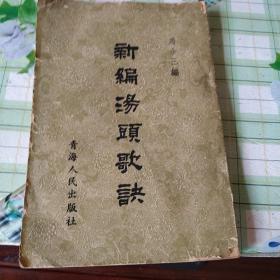 新編湯頭歌訣
青海人民出版社